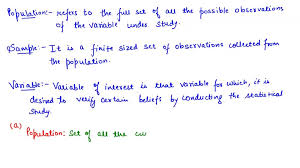 Population:- refers to the full set of all the possible observations
of the variable under study.
Sample:- It is a finite sized set of observations collected from
the population.
Variable:- Variable of interest is that variable for which, it is
desired to verify certain beliefs by conducting the statistical
study.
(a) Population: Set of all the cu